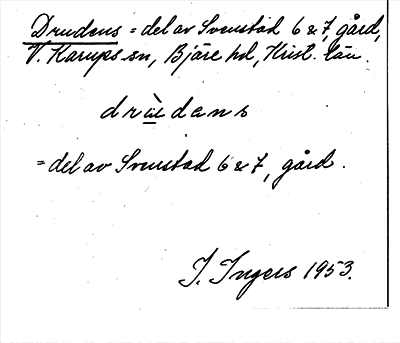 Drudens = del av Svenstad 6 & 7, gård,
V. Karups sn, Bjäre hd, Krist. län.
drùdens
= del av Svenstad 6 & 7, gård.
I. Ingers 1953.